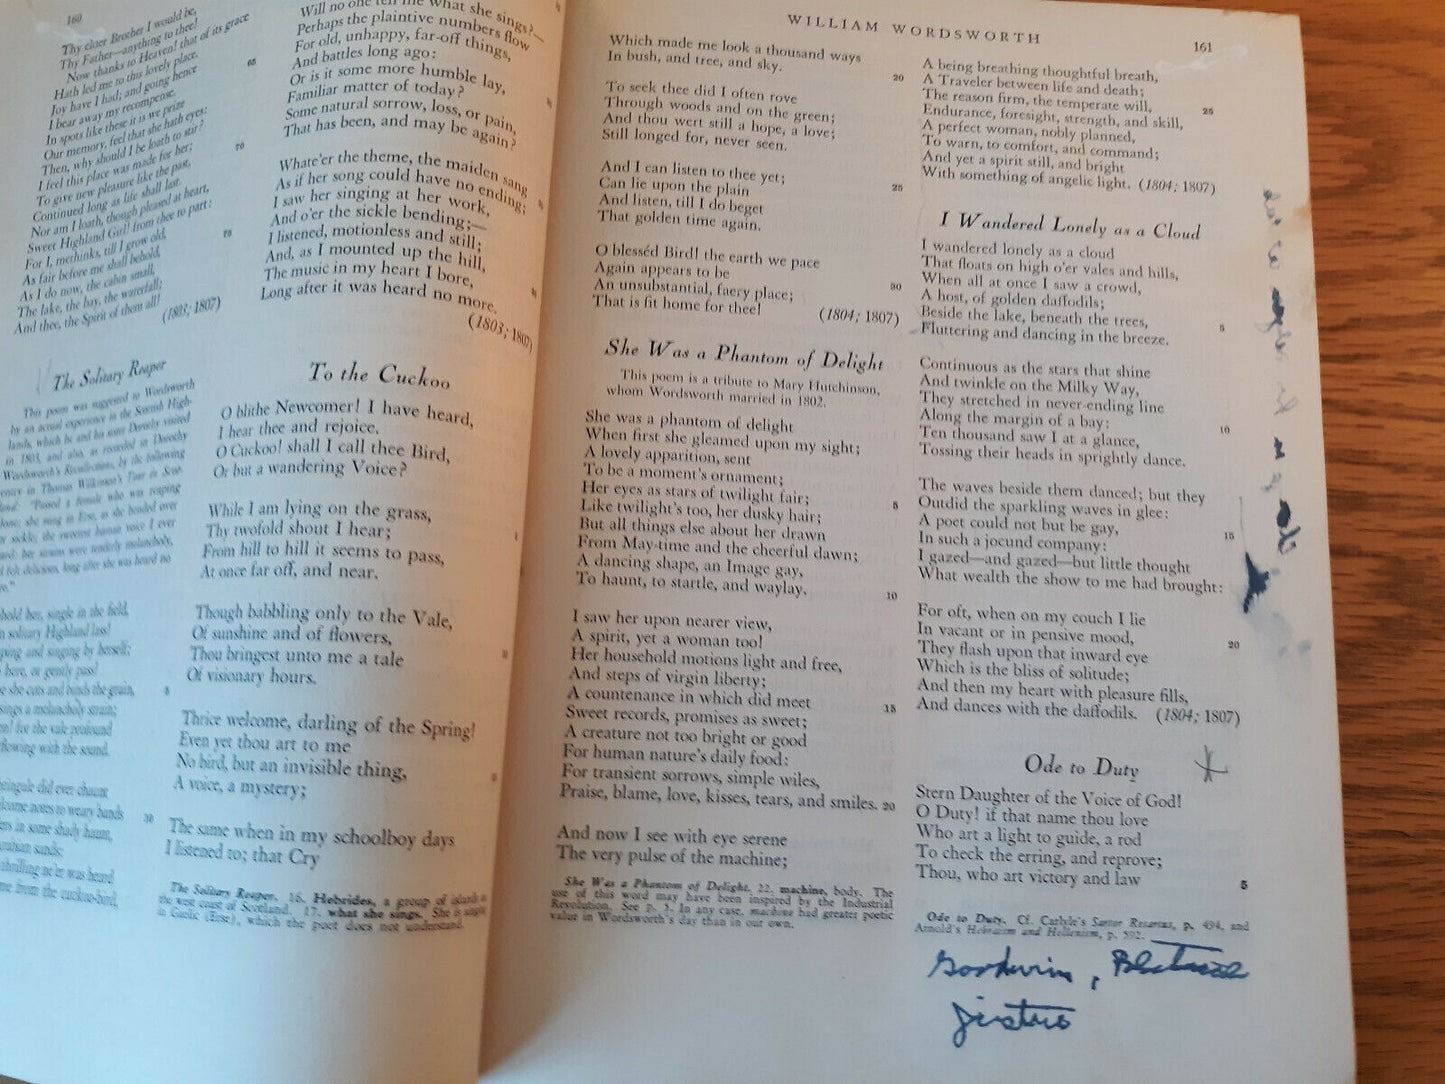 160
Thy elder Brother I would be,
Thy Father—anything to thee!
Now thanks to Heaven! that of its grace
Hath led me to this lovely place.
Joy have I had; and going hence
I bear away my recompense.
In spots like these it is we prize
Our memory, feel that she hath eyes:
Then, why should I be loath to stir?
I feel this place was made for her;
To give new pleasure like the past,
Continued long as life shall last.
Nor am I loath, though pleased at heart,
Sweet Highland Girl! from thee to part:
For I, methinks, till I grow old,
As fair before me shall behold,
As I do now, the cabin small,
The lake, the bay, the waterfall;
And thee, the Spirit of them all!
(1803; 1807)
The Solitary Reaper
This poem was suggested to Wordsworth
by an actual experience in the Scottish High-
lands, which he and his sister Dorothy visited
in 1803, and also, as recorded in Dorothy
Wordsworth's Recollections, by the following
entry in Thomas Wilkinson's Tour in Scot-
land: "Passed a female who was reaping
alone; she sung in Erse, as she bended over
her sickle; the sweetest human voice I ever
heard: her strains were tenderly melancholy,
felt delicious, long after she was heard no
hold her, single in the field,
solitary Highland lass!
ping and singing by herself;
here, or gently pass!
she cuts and binds the grain,
sings a melancholy strain;
for the vale profound
flowing with the sound.
ingale did ever chaunt
lcome notes to weary bands
ers in some shady haunt,
rabian sands:
thrilling ne'er was heard
me from the cuckoo-bird,
Will no one tell me what she sings?—
Perhaps the plaintive numbers flow
For old, unhappy, far-off things,
And battles long ago:
Or is it some more humble lay,
Familiar matter of today?
Some natural sorrow, loss, or pain,
That has been, and may be again?
Whate'er the theme, the maiden sang
As if her song could have no ending;
I saw her singing at her work,
And o'er the sickle bending;—
I listened, motionless and still;
And, as I mounted up the hill,
The music in my heart I bore,
Long after it was heard no more.
(1803; 1807)
To the Cuckoo
O blithe Newcomer! I have heard,
I hear thee and rejoice.
O Cuckoo! shall I call thee Bird,
Or but a wandering Voice?
While I am lying on the grass,
Thy twofold shout I hear;
From hill to hill it seems to pass,
At once far off, and near.
Though babbling only to the Vale,
Of sunshine and of flowers,
Thou bringest unto me a tale
Of visionary hours.
Thrice welcome, darling of the Spring!
Even yet thou art to me
No bird, but an invisible thing,
A voice, a mystery;
The same when in my schoolboy days
I listened to; that Cry
The Solitary Reaper. 16. Hebrides, a group of islands
the west coast of Scotland. 17. what she sings. She is singing
in Gaelic (Erse), which the poet does not understand.
WILLIAM WORDSWORTH
161
Which made me look a thousand ways
In bush, and tree, and sky. 20
To seek thee did I often rove
Through woods and on the green;
And thou wert still a hope, a love;
Still longed for, never seen.
And I can listen to thee yet;
Can lie upon the plain 25
And listen, till I do beget
That golden time again.
O blesséd Bird! the earth we pace
Again appears to be
An unsubstantial, faery place; 30
That is fit home for thee!
(1804; 1807)
She Was a Phantom of Delight
This poem is a tribute to Mary Hutchinson,
whom Wordsworth married in 1802.
She was a phantom of delight
When first she gleamed upon my sight;
A lovely apparition, sent
To be a moment's ornament;
Her eyes as stars of twilight fair; 5
Like twilight's too, her dusky hair;
But all things else about her drawn
From May-time and the cheerful dawn;
A dancing shape, an Image gay,
To haunt, to startle, and waylay. 10
I saw her upon nearer view,
A spirit, yet a woman too!
Her household motions light and free,
And steps of virgin liberty;
A countenance in which did meet 15
Sweet records, promises as sweet;
A creature not too bright or good
For human nature's daily food:
For transient sorrows, simple wiles,
Praise, blame, love, kisses, tears, and smiles. 20
And now I see with eye serene
The very pulse of the machine;
She Was a Phantom of Delight. 22. machine, body. The
use of this word may have been inspired by the Industrial
Revolution. See p. 3. In any case, machine had greater poetic
value in Wordsworth's day than in our own.
A being breathing thoughtful breath,
A Traveler between life and death;
The reason firm, the temperate will, 25
Endurance, foresight, strength, and skill,
A perfect woman, nobly planned,
To warn, to comfort, and command;
And yet a spirit still, and bright
With something of angelic light. (1804; 1807)
I Wandered Lonely as a Cloud
I wandered lonely as a cloud
That floats on high o'er vales and hills,
When all at once I saw a crowd,
A host, of golden daffodils;
Beside the lake, beneath the trees, 5
Fluttering and dancing in the breeze.
Continuous as the stars that shine
And twinkle on the Milky Way,
They stretched in never-ending line
Along the margin of a bay: 10
Ten thousand saw I at a glance,
Tossing their heads in sprightly dance.
The waves beside them danced; but they
Outdid the sparkling waves in glee:
A poet could not but be gay, 15
In such a jocund company:
I gazed—and gazed—but little thought
What wealth the show to me had brought:
For oft, when on my couch I lie
In vacant or in pensive mood, 20
They flash upon that inward eye
Which is the bliss of solitude;
And then my heart with pleasure fills,
And dances with the daffodils. (1804; 1807)
Ode to Duty
Stern Daughter of the Voice of God!
O Duty! if that name thou love
Who art a light to guide, a rod
To check the erring, and reprove;
Thou, who art victory and law 5
Ode to Duty. Cf. Carlyle's Sartor Resartus, p. 494, and
Arnold's Hebraism and Hellenism, p. 592.
Goodwin,